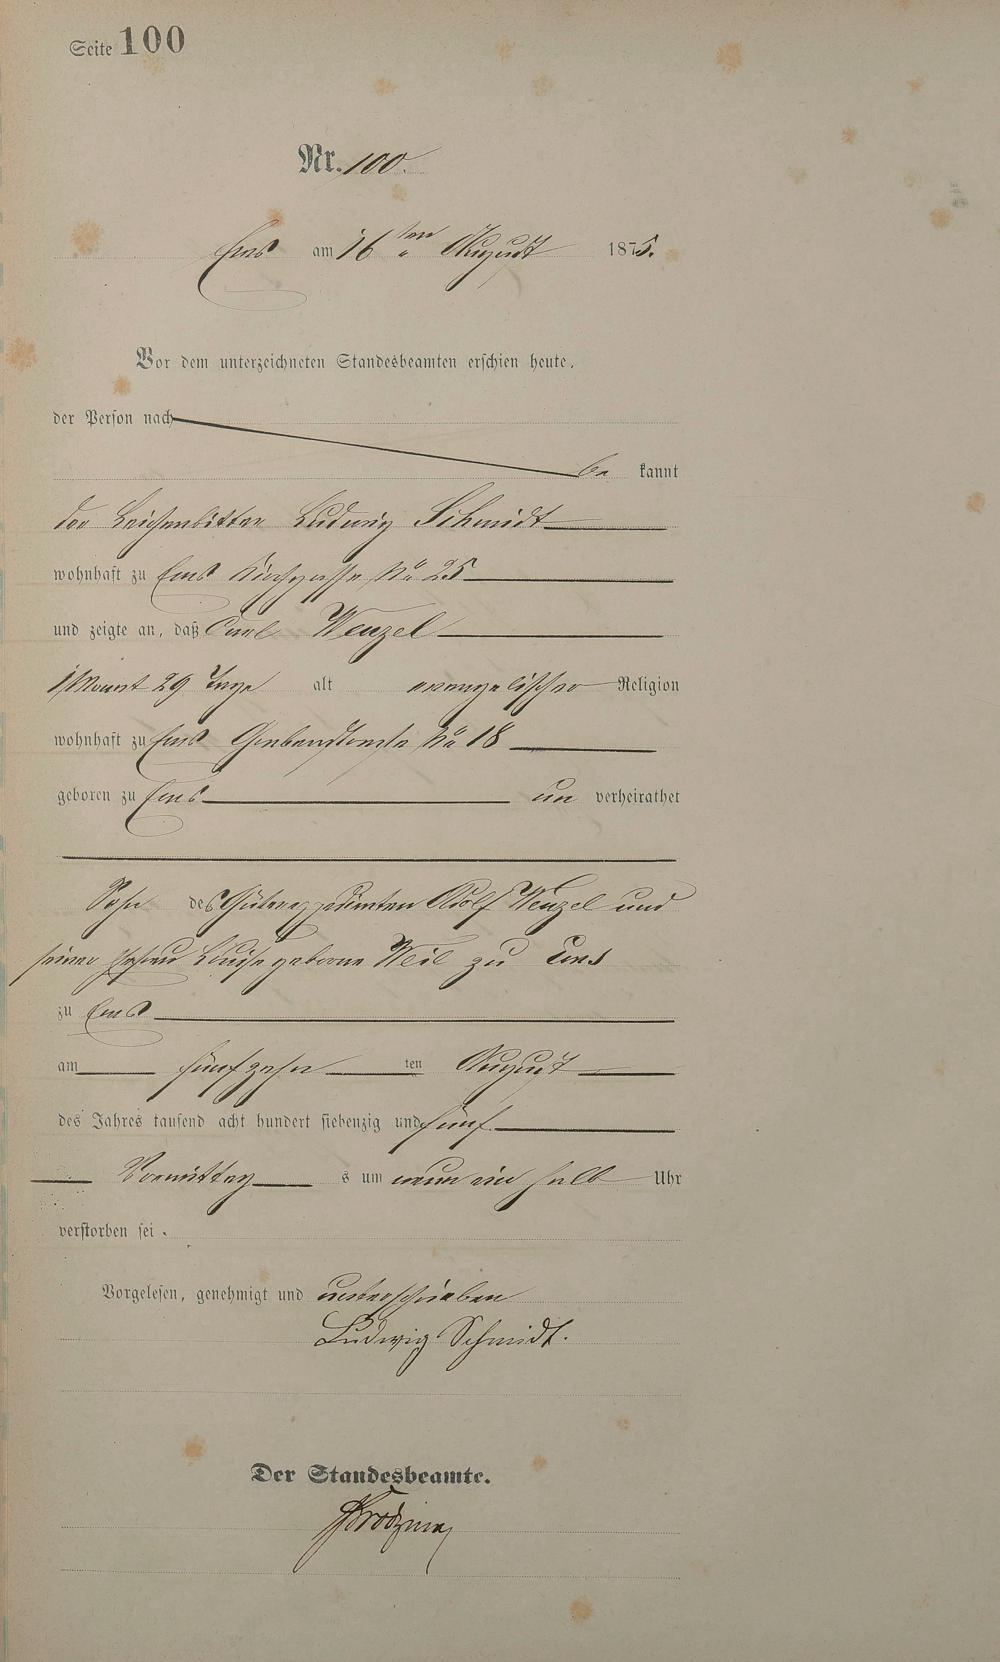 Seite 100
Nr. 100.
Ems am 16ten August 1875.
Vor dem unterzeichneten Standesbeamten erschien heute,
der Person nach
be kannt
der Leichenbitter Ludwig Schmidt
wohnhaft zu Ems Kirchgasse No 25
und zeigte an, daß Carl Wenzel
1 Monat 29 Tage alt evangelischer Religion
wohnhaft zu Ems Grabenstraße No 18
geboren zu Ems un verheirathet
Sohn des Adolf Wenzel und
seiner Ehefrau Louise geborne Weil zu Ems
zu Ems
am fünfzehn ten August
des Jahres tausend acht hundert siebenzig und fünf
Vormittag s um neun ein halb Uhr
verstorben sei.
Vorgelesen, genehmigt und unterschrieben
Ludwig Schmidt.
Der Standesbeamte.